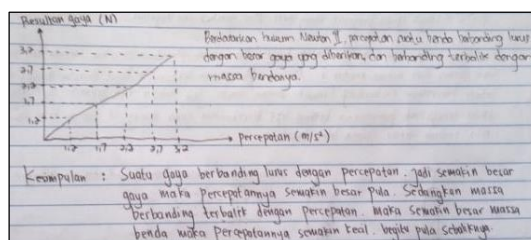 Resultan gaya (N)
Berdasarkan hukum Newton II, percepatan suatu benda berbanding lurus
dengan besar gaya yang diberikan, dan berbanding terbalik dengan
massa bendanya.
3,2
2,7
2,2
1,7
1,2
1,2 1,7 2,2 2,7 3,2
percepatan (m/s²)
Kesimpulan : Suatu gaya berbanding lurus dengan percepatan. jadi semakin besar
gaya maka percepatannya semakin besar pula. Sedangkan massa
berbanding terbalik dengan percepatan. maka semakin besar massa
benda maka percepatannya semakin kecil. begitu pula sebaliknya.